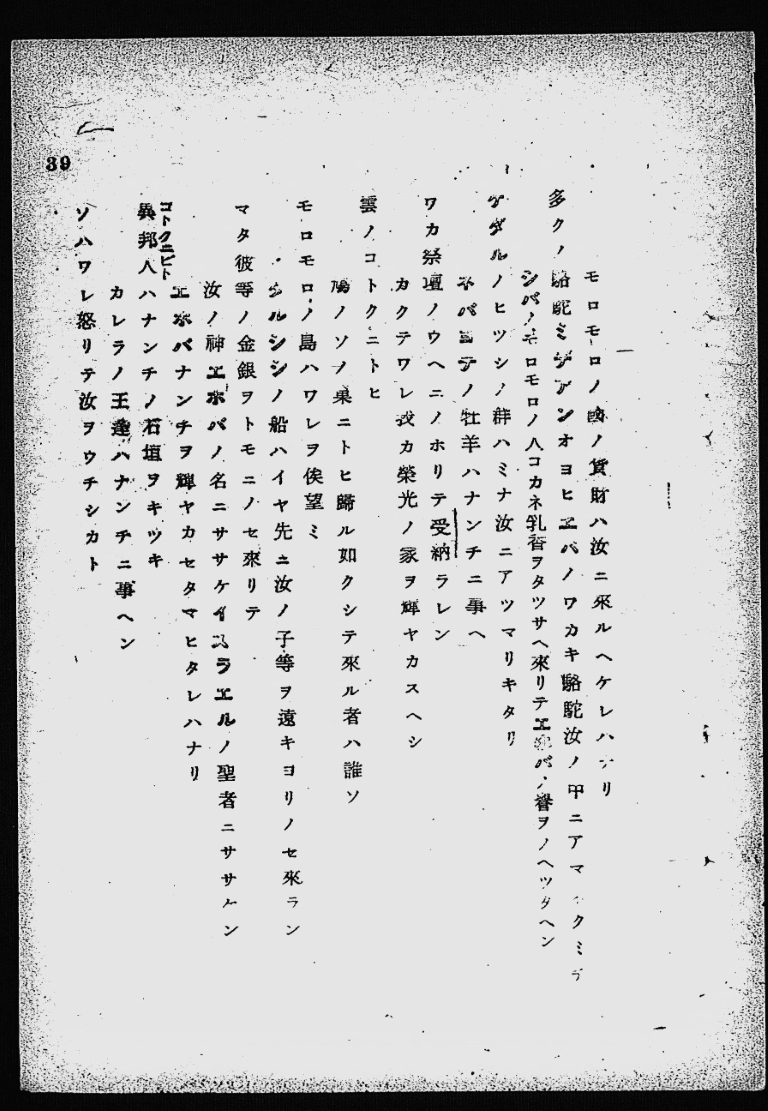 39
モロモロノ國ノ貨財ハ汝ニ來ルヘケレハナリ
多クノ駱駝ミデアンオヨヒエパノワカキ駱駝汝ノ中ニアマネクミチ
シバノモロモロノ人コカネ乳香ヲタツサヘ來リテエホバノ譽ヲノヘツタヘン
ケダルノヒツシノ群ハミナ汝ニアツマリキタリ
ネバヨテノ牡羊ハナンチニ事ヘ
ワカ祭壇ノウヘニノホリテ受納ラレン
カクテワレ我カ榮光ノ家ヲ輝ヤカスヘシ
雲ノコトクニトヒ
鳩ノソノ巣ニトヒ歸ル如クシテ來ル者ハ誰ソ
モロモロノ島ハワレヲ俟望ミ
タルシシノ船ハイヤ先ニ汝ノ子等ヲ遠キヨリノセ來ラン
マタ彼等ノ金銀ヲトモニノセ來リテ
汝ノ神エホバノ名ニササケイスラエルノ聖者ニササケン
エホバナンチヲ輝ヤカセタマヒタレハナリ
異邦人ハナンチノ石垣ヲキツキ
コトクニビト
カレラノ王達ハナンチニ事ヘン
ソハワレ怒リテ汝ヲウチシカト